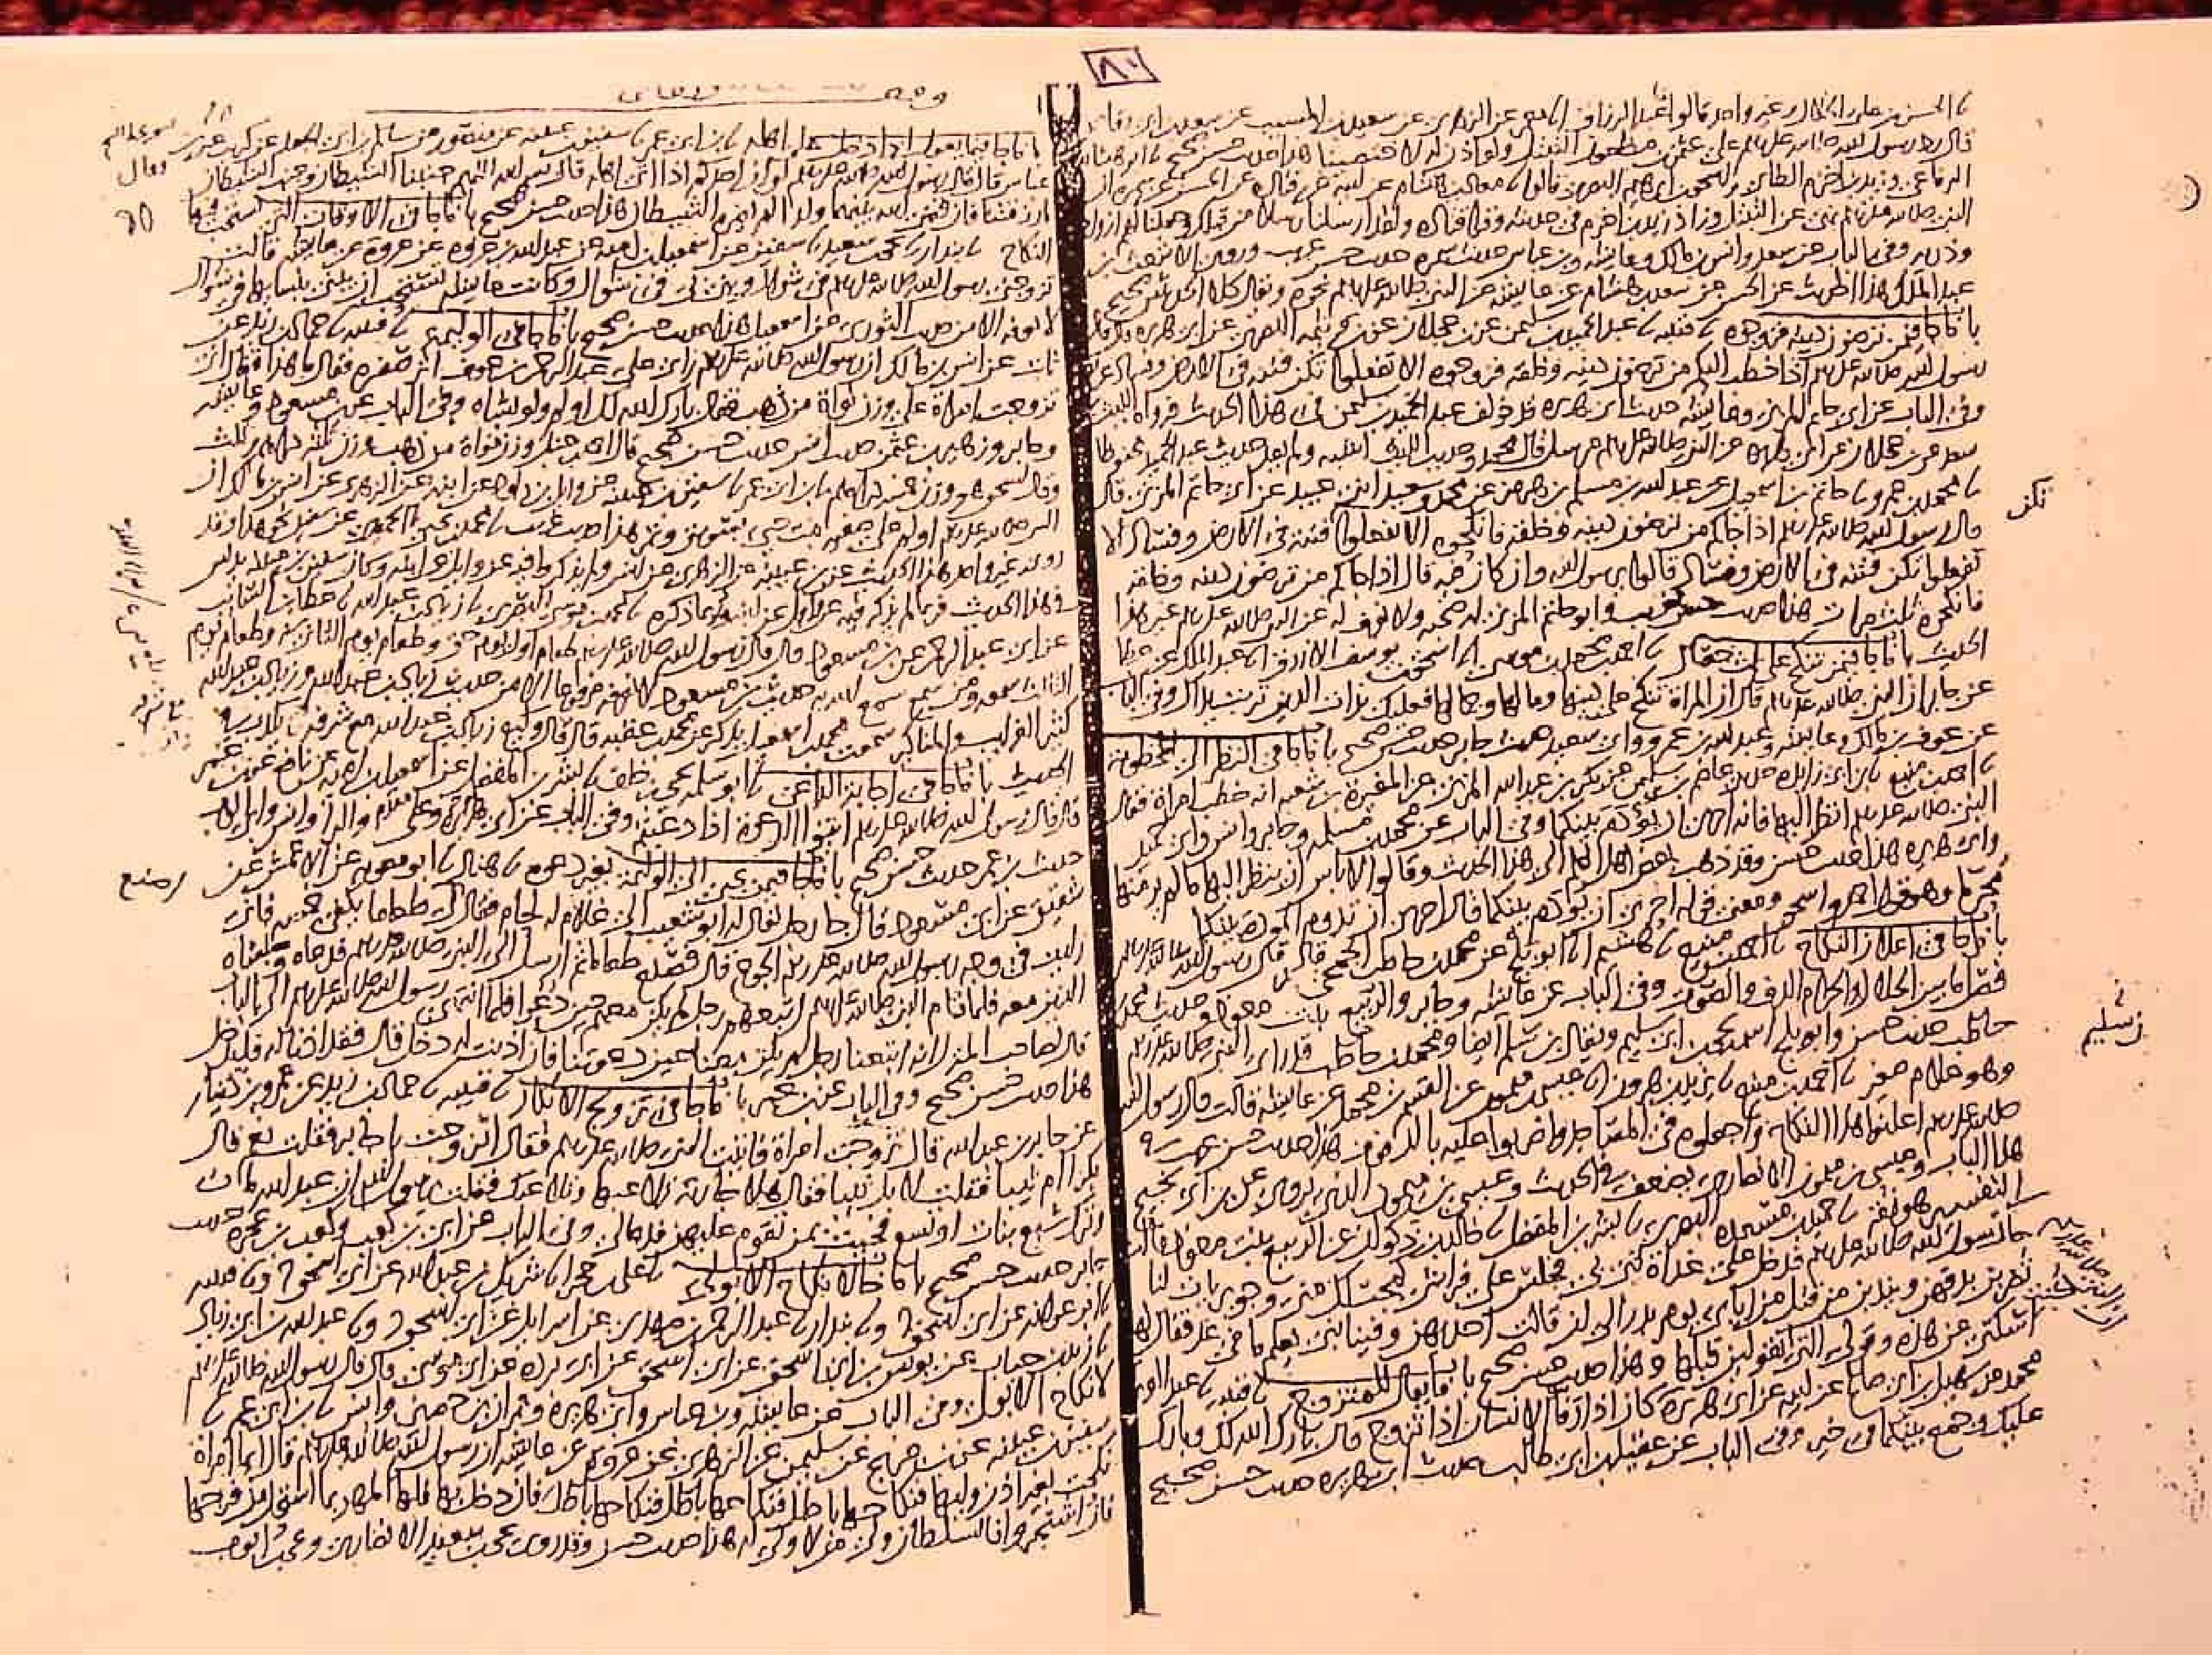 ٨٠
نا الحسن بن علي الخلال وغير واحد قالوا نا عبد الرزاق انا معمر عن الزهري عن سعيد بن المسيب عن سعد بن ابي وقاص
قال رد رسول الله صلى الله عليه وسلم على عثمن بن مظعون التبتل ولو اذن له لاختصينا هذا حديث حسن صحيح نا ابو هشام
الرفاعي وزيد بن اخزم الطائي واسحق بن ابرهيم البصري قالوا نا معاذ بن هشام عن ابيه عن قتادة عن الحسن عن سمرة ان
النبي صلى الله عليه وسلم نهى عن التبتل وزاد زيد بن اخزم في حديثه وقرا قتادة ولقد ارسلنا رسلا من قبلك وجعلنا لهم ازواجا
وذرية وفي الباب عن سعد وانس بن مالك وعائشة وبن عباس حديث سمرة حديث حسن غريب وروى الاشعث بن
عبد الملك هذا الحديث عن الحسن عن سعد بن هشام عن عايشة عن النبي صلى الله عليه وسلم نحوه ويقال كلا الحديثين صحيح
باب ما جا فيمن ترضون دينه فزوجوه نا قتيبة نا عبد الحميد بن سليمن عن بن عجلان عن بن وثيمة النصري عن ابي هريرة قال قال
رسول الله صلى الله عليه وسلم اذا خطب اليكم من ترضون دينه وخلقه فزوجوه الا تفعلوا تكن فتنة في الارض وفساد عريض
وفي الباب عن ابي حاتم المزني وعائشة حديث ابي هريرة قد خولف عبد الحميد بن سليمن في هذا الحديث فرواه الليث بن
سعد عن بن عجلان عن ابي هريرة عن النبي صلى الله عليه وسلم مرسل قال محمد وحديث الليث اشبه ولم يعد حديث عبد الحميد محفوظا
نا محمد بن عمرو نا حاتم بن اسمعيل عن عبد الله بن مسلم بن هرمز عن محمد وسعيد ابني عبيد عن ابي حاتم المزني قال
قال رسول الله صلى الله عليه وسلم اذا جاكم من ترضون دينه وخلقه فانكحوه الا تفعلوا فتنة في الارض وفساد الا
تكن
تفعلوا تكن فتنة في الارض وفساد قالوا يرسول الله وان كان فيه قال اذا جاكم من ترضون دينه وخلقه
فانكحوه ثلث مرات هذا حديث حسن غريب وابو حاتم المزني له صحبة ولا نعرف له عن النبي صلى الله عليه وسلم غير هذا
الحديث باب ما جا فيمن تنكح على ثلث خصال نا احمد بن محمد بن موسى انا اسحق بن يوسف الازرق نا عبد الملك عن عطا
عن جابر ان النبي صلى الله عليه وسلم قال ان المراة تنكح على دينها ومالها وجمالها فعليك بذات الدين تربت يداك وفي الباب
عن عوف بن مالك وعايشة وعبد الله بن عمرو وابي سعيد حديث جابر حديث حسن صحيح باب ما جا في النظر الى المخطوبة
نا احمد بن منيع نا بن ابي زايدة حدثني عاصم بن سليمن عن بكر بن عبد الله المزني عن المغيرة بن شعبة انه خطب امراة فقال
النبي صلى الله عليه وسلم انظر اليها فانه احرى ان يؤدم بينكما وفي الباب عن محمد بن مسلمة وجابر وانس وابي حميد
وابي هريرة هذا حديث حسن وقد ذهب بعض اهل العلم الى هذا الحديث وقالوا لا باس ان ينظر اليها ما لم ير منها
محرما وهو قول احمد واسحق ومعنى قوله احرى ان يؤدم بينكما قال احرى ان تدوم المودة بينكما
باب ما جا في اعلان النكاح نا احمد بن منيع نا هشيم انا ابو بلج عن محمد بن حاطب الجمحي قال قال رسول الله صلى الله عليه وسلم
فصل ما بين الحلال والحرام الدف والصوت وفي الباب عن عائشة وجابر والربيع بنت معوذ وحديث محمد بن
حاطب حديث حسن وابو بلج اسمه يحيى بن ابي سليم ويقال بن سليم ايضا ومحمد بن حاطب قد راى النبي صلى الله عليه وسلم
وهو غلام صغير نا احمد بن منيع نا يزيد بن هرون انا عيسى بن ميمون عن القسم بن محمد عن عايشة قالت قال رسول الله
صلى الله عليه وسلم اعلنوا هذا النكاح واجعلوه في المساجد واضربوا عليه بالدفوف هذا حديث حسن غريب في
هذا الباب وعيسى بن ميمون الانصاري يضعف في الحديث وعيسى بن ميمون الذي يروي عن بن ابي نجيح
التفسير هو ثقة نا حميد بن مسعدة البصري نا بشر بن المفضل نا خالد بن ذكوان عن الربيع بنت معوذ قالت
جا رسول الله صلى الله عليه وسلم فدخل علي غداة بني بي فجلس على فراشي كمجلسك مني وجويريات لنا
يضربن بدفوفهن ويندبن من قتل من اباي يوم بدر الى ان قالت احداهن وفينا نبي يعلم ما في غد فقال لها
اسكتي عن هذه وقولي التي كنت تقولين قبلها وهذا حديث حسن صحيح باب ما يقال للمتزوج نا قتيبة نا عبد العزيز بن
محمد عن سهيل بن ابي صالح عن ابيه عن ابي هريرة كان اذا رفا الانسان اذا تزوج قال بارك الله لك وبارك
عليك وجمع بينكما في خير وفي الباب عن عقيل بن ابي طالب حديث ابي هريرة حديث حسن صحيح
باب ما جا فيما يقول اذا دخل على اهله نا بن ابي عمر نا سفين بن عيينة عن منصور عن سالم بن ابي الجعد عن كريب عن بن
عباس قال قال رسول الله صلى الله عليه وسلم لو ان احدكم اذا اتى اهله قال بسم الله اللهم جنبنا الشيطان وجنب الشيطان
ما رزقتنا فان قضى الله بينهما ولدا لم يضره الشيطان هذا حديث حسن صحيح باب ما جا في الاوقات التي يستحب فيها
النكاح نا بندار نا يحيى بن سعيد نا سفين عن اسمعيل بن امية عن عبد الله بن عروة عن عروة عن عايشة قالت
تزوجني رسول الله صلى الله عليه وسلم في شوال وبنى بي في شوال وكانت عايشة تستحب ان يبنى بنسايها في شوال
لا نعرفه الا من حديث الثوري عن اسمعيل هذا حديث حسن صحيح باب ما جا في الوليمة نا قتيبة نا حماد بن زيد عن
ثابت عن انس بن مالك ان رسول الله صلى الله عليه وسلم راى على عبد الرحمن بن عوف اثر صفرة فقال ما هذا فقال اني
تزوجت امراة على وزن نواة من ذهب فقال بارك الله لك اولم ولو بشاة وفي الباب عن بن مسعود وعايشة
وجابر وزهير بن عثمن حديث انس حديث حسن صحيح قال احمد بن حنبل وزن نواة من ذهب وزن ثلثة دراهم وثلث
وقال اسحق هو وزن خمسة دراهم نا بن ابي عمر نا سفين بن عيينة عن وايل بن داود عن ابيه عن الزهري عن انس بن مالك ان
النبي صلى الله عليه وسلم اولم على صفية بنت حيي بسويق وتمر هذا حديث غريب نا محمد بن يحيى نا الحميدي عن سفين نحو هذا وقد
روى غير واحد هذا الحديث عن بن عيينة عن الزهري عن انس ولم يذكروا فيه عن وايل عن ابنه وكان سفين بن عيينة يدلس
في هذا الحديث فربما لم يذكر فيه عن وايل عن ابنه وربما ذكره نا محمد بن موسى البصري نا زياد بن عبد الله نا عطا بن السائب
عن ابي عبد الرحمن عن بن مسعود قال قال رسول الله صلى الله عليه وسلم طعام اول يوم حق وطعام يوم الثاني سنة وطعام يوم
الثالث سمعة ومن سمع سمع الله به حديث بن مسعود لا نعرفه مرفوعا الا من حديث زياد بن عبد الله وزياد بن عبد الله
كثير الغرايب والمناكير سمعت محمد بن اسمعيل يذكر عن محمد بن عقبة قال قال وكيع زياد بن عبد الله مع شرفه يكذب في
الحديث باب ما جا في اجابة الداعي نا ابو سلمة يحيى بن خلف نا بشر بن المفضل عن اسمعيل بن امية عن نافع عن بن عمر
قال قال رسول الله صلى الله عليه وسلم ايتوا الدعوة اذا دعيتم وفي الباب عن علي وابي هريرة والبرا وانس وابي ايوب
حديث بن عمر حديث حسن صحيح باب ما جا فيمن يجي الى الوليمة بغير دعوة نا هناد نا ابو معوية عن الاعمش عن
شقيق عن ابي مسعود قال جا رجل يقال له ابو شعيب الى غلام له لحام فقال له طعاما يكفي خمسة فاني
اصنع
رايت في وجه رسول الله صلى الله عليه وسلم الجوع قال فصنع طعاما ثم ارسل الى النبي صلى الله عليه وسلم فدعاه وجلساه
الذين معه فلما قام النبي صلى الله عليه وسلم اتبعهم رجل لم يكن معهم حين دعوا فلما انتهى رسول الله صلى الله عليه وسلم الى الباب
قال لصاحب المنزل انه اتبعنا رجل لم يكن معنا حين دعوتنا فان اذنت له دخل قال فقد اذنا له فليدخل
هذا حديث حسن صحيح وفي الباب عن بن عمر باب ما جا في تزويج الابكار نا قتيبة نا حماد بن زيد عن عمرو بن دينار
عن جابر بن عبد الله قال تزوجت امراة فاتيت النبي صلى الله عليه وسلم فقال اتزوجت يا جابر فقلت نعم قال
بكرا ام ثيبا فقلت لا بل ثيبا فقال هلا جارية تلاعبها وتلاعبك فقلت يرسول الله ان عبد الله مات
وترك سبع بنات او تسع فجيت بمن تقوم عليهن فدعا لي وفي الباب عن ابي بن كعب وكعب بن عجرة حديث
جابر حديث حسن صحيح باب ما جا لا نكاح الا بولي نا علي بن حجر انا شريك بن عبد الله عن ابي اسحق ونا قتيبة
نا ابو عوانة عن ابي اسحق ونا بندار نا عبد الرحمن بن مهدي عن اسرايل عن ابي اسحق ونا عبد الله بن ابي زياد
نا زيد بن حباب عن يونس بن ابي اسحق عن ابي اسحق عن ابي بردة عن ابي موسى قال قال رسول الله صلى الله عليه وسلم
لا نكاح الا بولي وفي الباب عن عايشة وبن عباس وابي هريرة وعمران بن حصين وانس نا بن ابي عمر نا
سفين بن عيينة عن بن جريج عن سليمن عن الزهري عن عروة عن عايشة ان رسول الله صلى الله عليه وسلم قال ايما امراة
نكحت بغير اذن وليها فنكاحها باطل فنكاحها باطل فنكاحها باطل فان دخل بها فلها المهر بما استحل من فرجها
فان اشتجروا فالسلطان ولي من لا ولي له هذا حديث حسن وقد روى يحيى بن سعيد الانصاري ويحيى بن ايوب